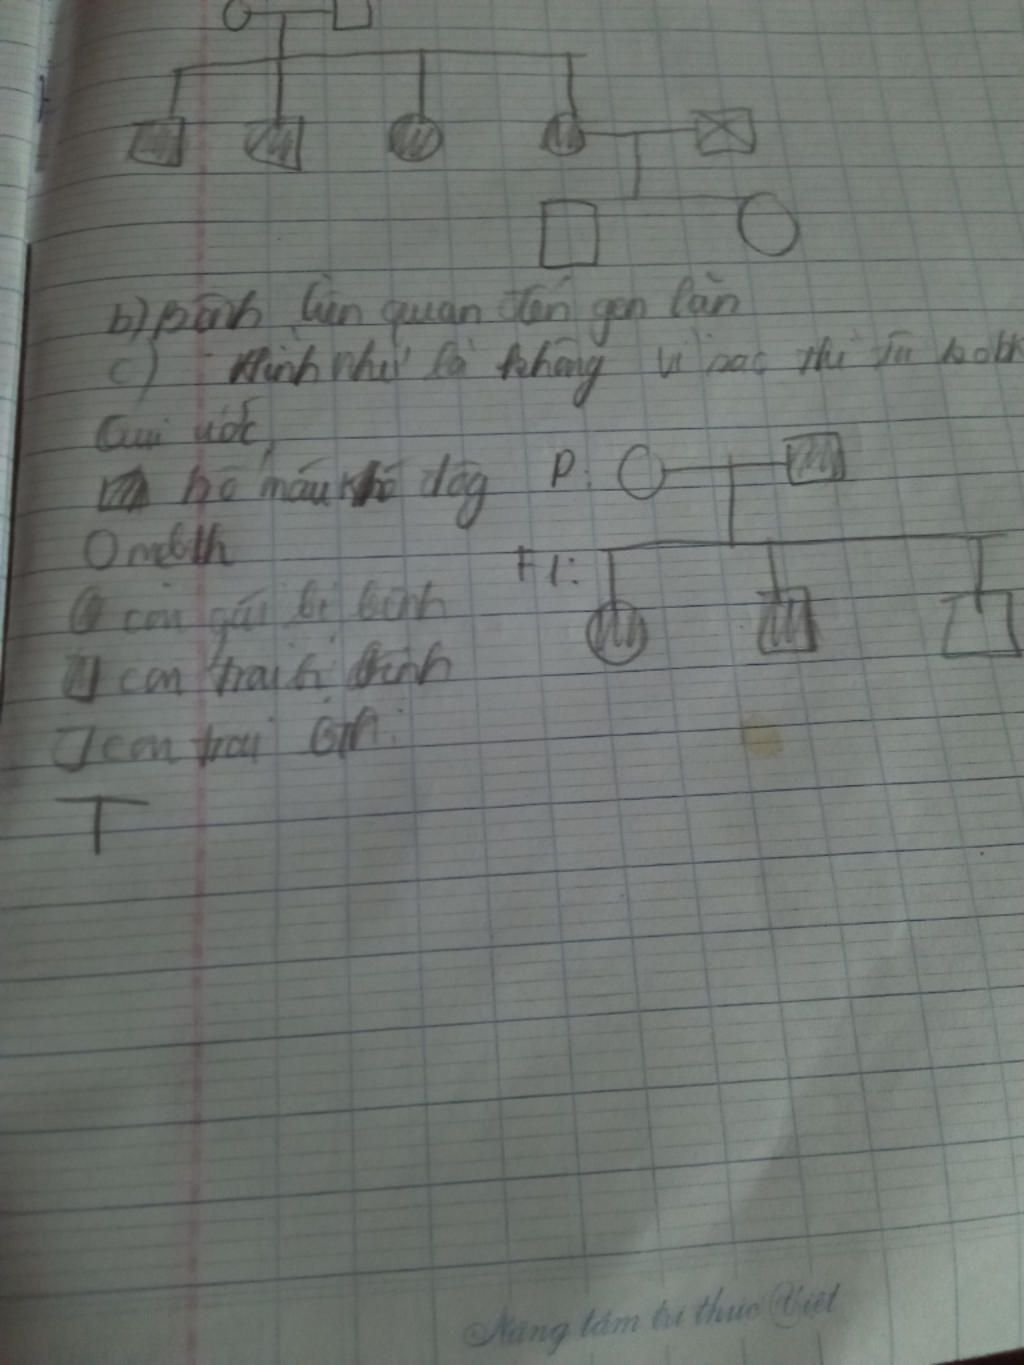 b) bệnh liên quan đến gen lặn
c) Hình như là không vì thì
Qui ước
bố máu khó đông P:
O mẹ bth F1:
con gái bị bệnh
con trai bị bệnh
con trai bth
Nâng tầm tri thức Việt